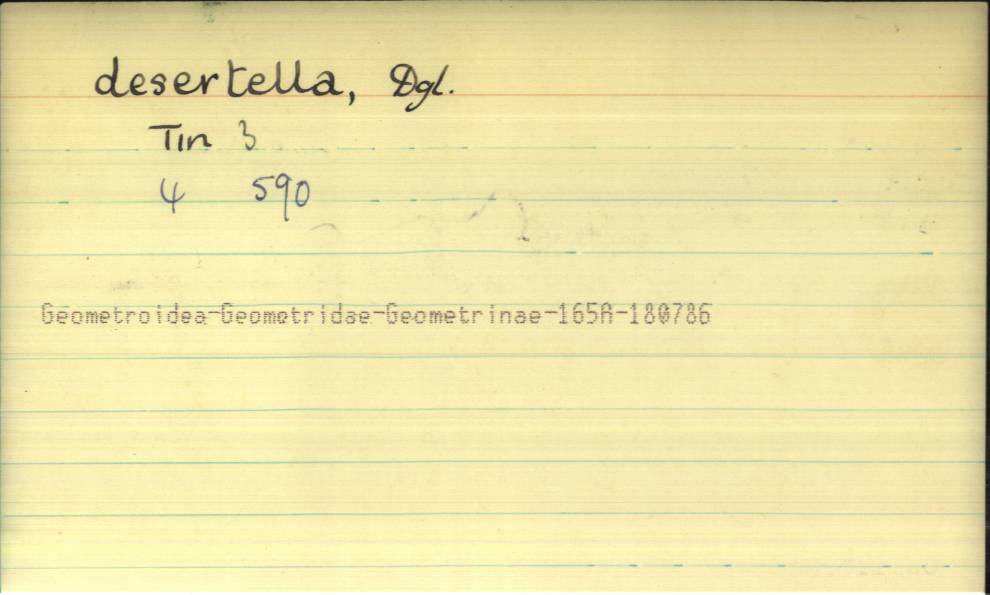 desertella, Dgl.
Tin 3
4 590
Geometroidea-Geometridae-Geometrinae-165A-180786